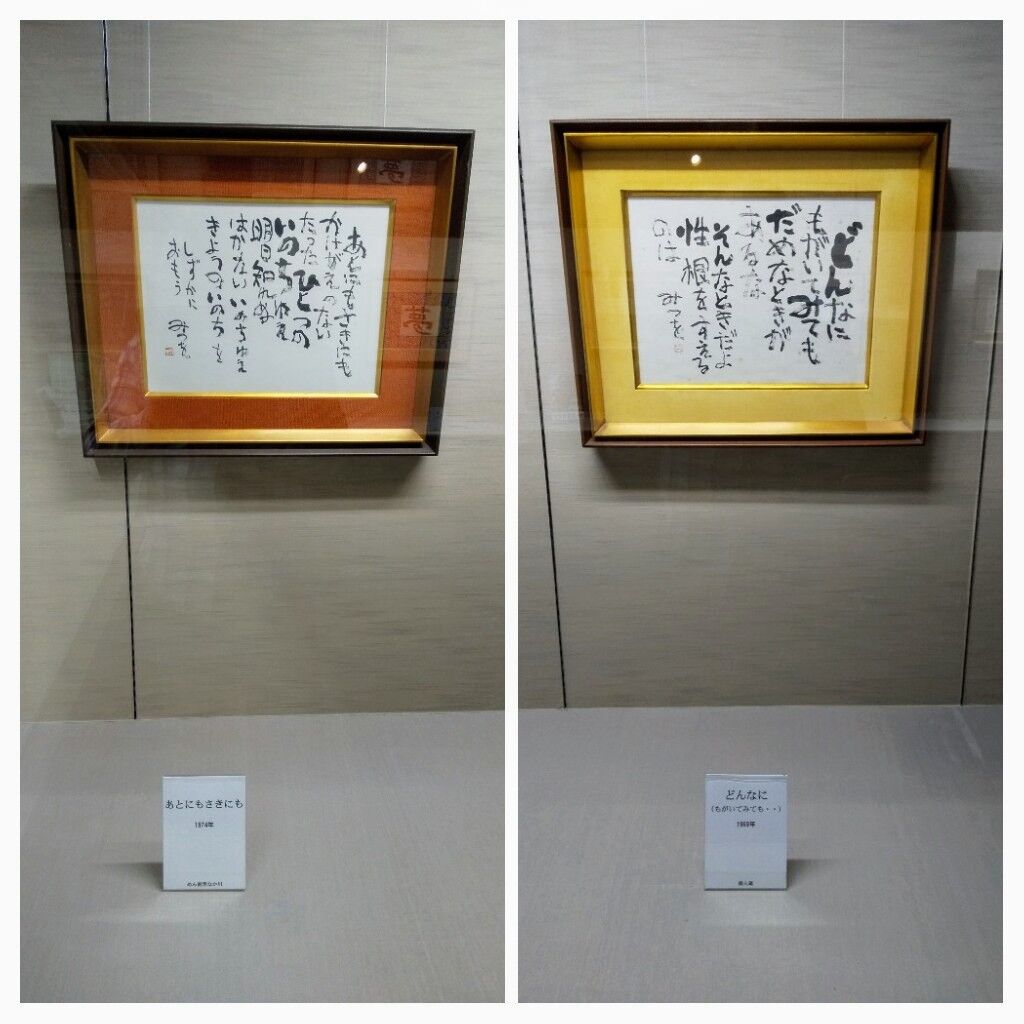 あとにもさきにも
かけがえのない
たった ひとつの
いのちゆえ
明日知れぬ
はかないいのちゆえ
きょうのいのちを
しずかに
おもう
みつを
夢
夢
あとにもさきにも
1974年
どんなに
もがいてみても
だめなときが
あるな
そんなときだよ
性根をすえる
のは
みつを
どんなに
(もがいてみても・・)
個人蔵